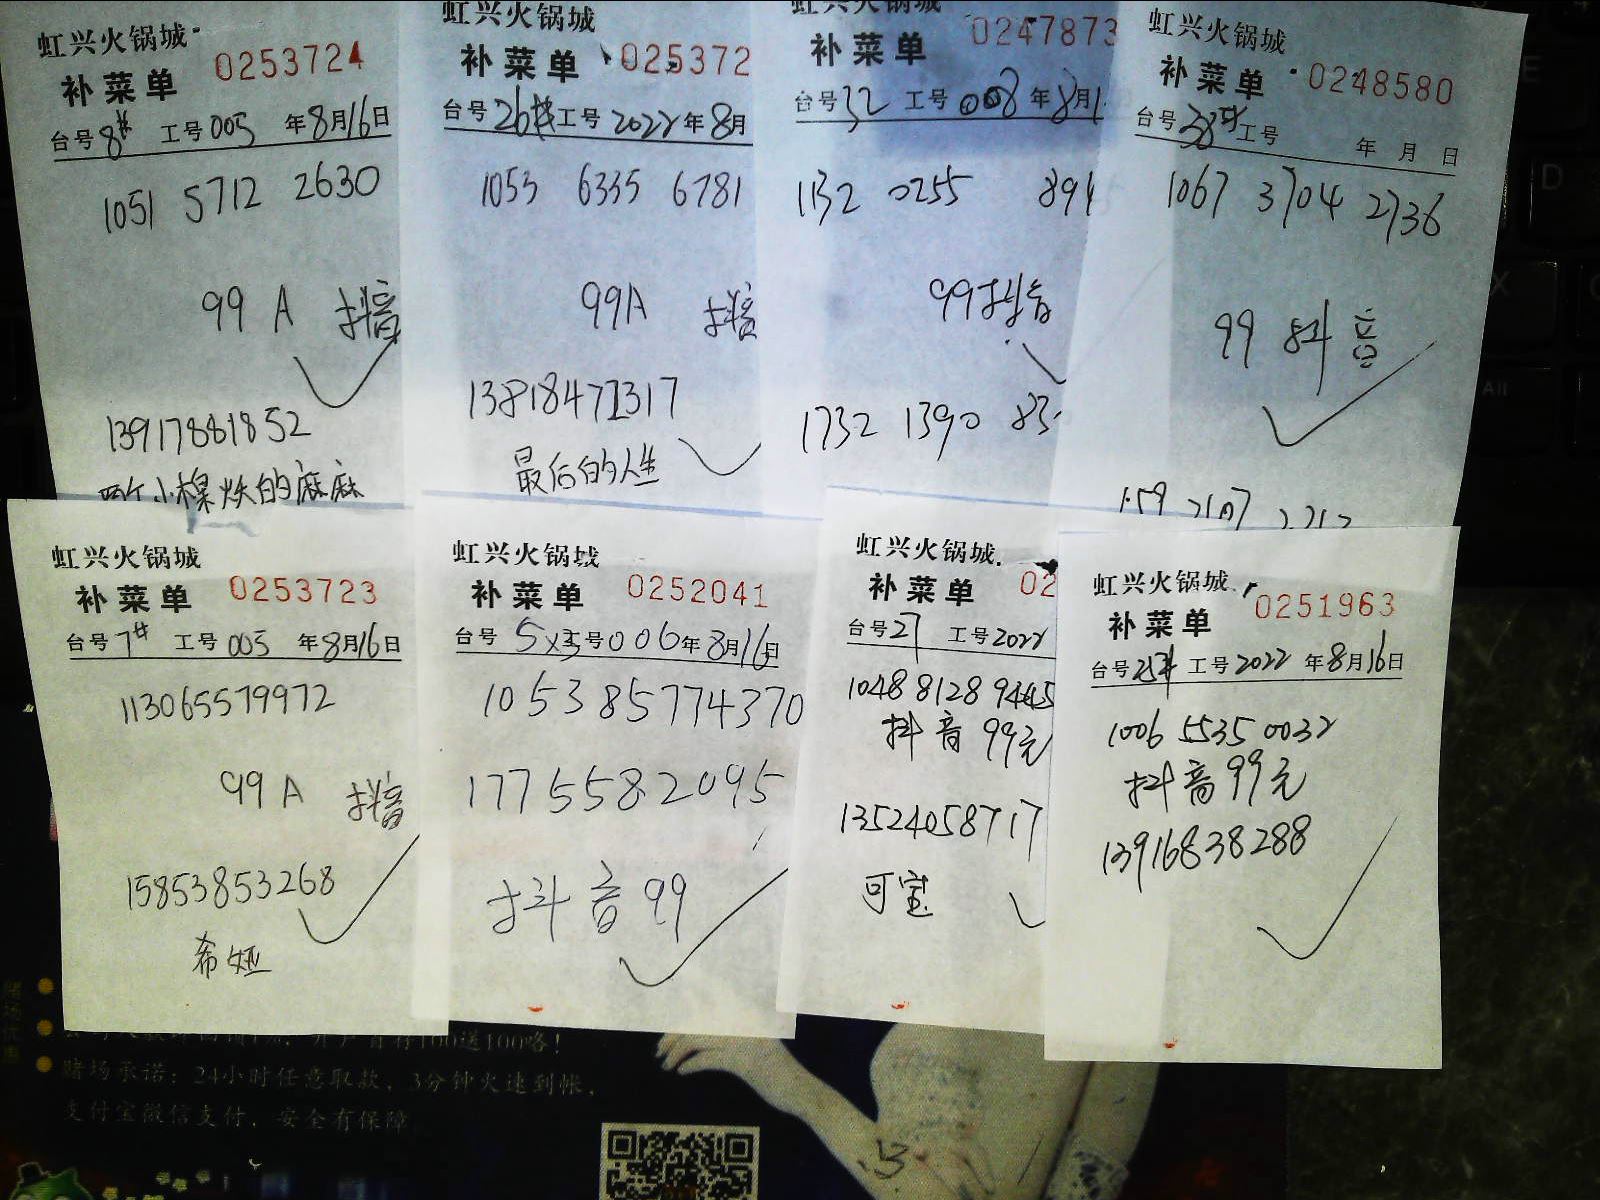 虹兴火锅城
补菜单 0253724
台号 8# 工号 005 年 8月16日
1051 5712 2630
99 A 抖音
13917881852
的麻麻
虹兴火锅城
补菜单 025372
台号 26# 工号 2022年 8月
1053 6335 6781
99A 抖音
13818471317
最后的人生
虹兴火锅城
补菜单 0247873
台号 32 工号 008 年 8月1
1132 0255 894
99抖音
1732 1390 83
虹兴火锅城
补菜单 0248580
台号 38# 工号 年 月 日
1067 3704 2736
99 抖音
159 2107
虹兴火锅城
补菜单 0253723
台号 7# 工号 005 年 8月16日
113065579972
99 A 抖音
15853853268
希娅
虹兴火锅城
补菜单 0252041
台号 5 号 006年 8月16日
1053 85774370
17755582095
抖音 99
虹兴火锅城
补菜单 02
台号 27 工号 2022
1048 8128 9445
抖音 99元
13524058717
可宝
虹兴火锅城
补菜单 0251963
台号 25# 工号 2022 年 8月16日
1006 5535 0032
抖音 99元
13916838288
送100咯!
赌场承诺: 24小时任意取款, 3分钟火速到帐,
支付宝微信支付, 安全有保障